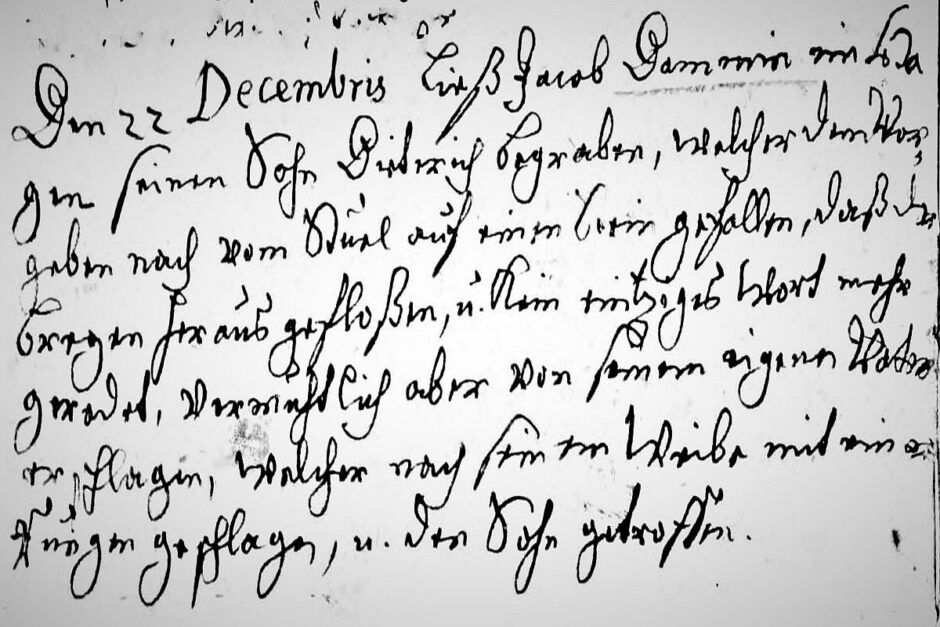 Den 22 Decembris Ließ Jacob Dammin im
gen seinen Sohn Dieterich begraben, welcher dem Vor,
geben nach vom Stuel auf einen Stein gefallen, daß der
bregen heraus gefloßen, u. kein eintziges Wort mehr
geredet, vermuhtlich aber von seinem eigenen Vater
erschlagen, welcher nach seinem Weibe mit einer
geschlagen, u. den Sohn getroffen.